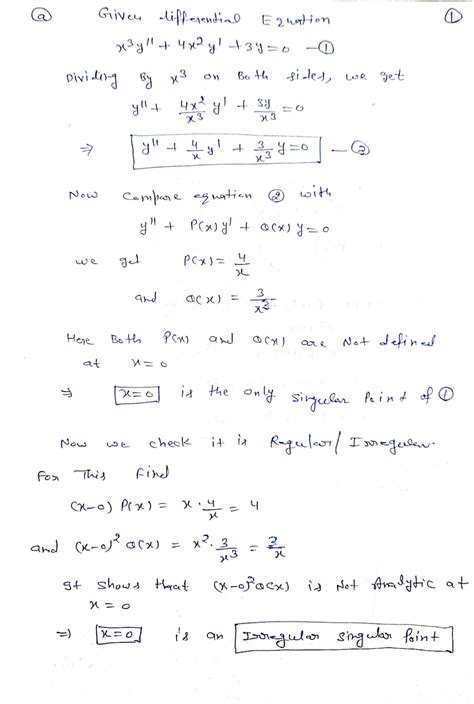 ⓐ Given differential Equation ①
x³y'' + 4x²y' + 3y = 0 —①
Dividing By x³ on Both sides, we get
y'' + 4x²/x³ y' + 3y/x³ = 0
⇒ y'' + 4/x y' + 3/x³ y = 0 —②
Now Compare equation ② with
y'' + P(x)y' + Q(x)y = 0
we get P(x) = 4/x
and Q(x) = 3/x³
Here Both P(x) and Q(x) are Not defined
at x = 0
⇒ x=0 is the only singular Point of ①
Now we check it is Regular/Irregular.
For This Find
(x-0) P(x) = x · 4/x = 4
and (x-0)² Q(x) = x² · 3/x³ = 3/x
It shows that (x-0)²Q(x) is Not Analytic at
x = 0
⇒ x=0 is an Irregular singular Point